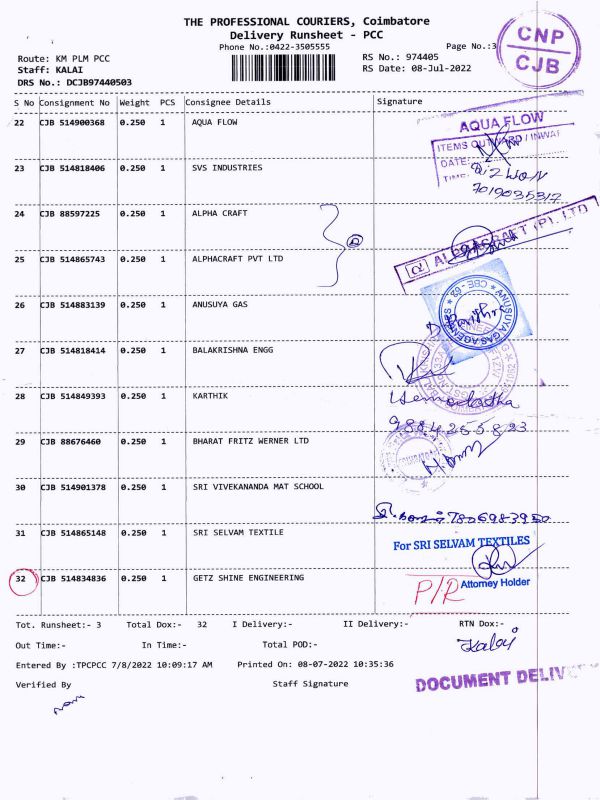 THE PROFESSIONAL COURIERS, Coimbatore
Delivery Runsheet - PCC
Phone No.:0422-3505555
Page No.:3
CNP
CJB
Route: KM PLM PCC
Staff: KALAI
DRS No.: DCJB97440503
RS No.: 974405
RS Date: 08-Jul-2022
S No Consignment No Weight PCS Consignee Details Signature
22 CJB 514900368 0.250 1 AQUA FLOW
AQUA FLOW
ITEMS OUTWARD / INWAR
DATE:
TIME:
23 CJB 514818406 0.250 1 SVS INDUSTRIES
7019035317
24 CJB 88597225 0.250 1 ALPHA CRAFT
ALPHACRAFT (P). LTD
25 CJB 514865743 0.250 1 ALPHACRAFT PVT LTD
26 CJB 514883139 0.250 1 ANUSUYA GAS
ANUSUYA GAS AGENCIES * CBE - 62 *
27 CJB 514818414 0.250 1 BALAKRISHNA ENGG
28 CJB 514849393 0.250 1 KARTHIK
Hemalatha
9884255823
29 CJB 88676460 0.250 1 BHARAT FRITZ WERNER LTD
30 CJB 514901378 0.250 1 SRI VIVEKANANDA MAT SCHOOL
7806983950
31 CJB 514865148 0.250 1 SRI SELVAM TEXTILE
For SRI SELVAM TEXTILES
Attorney Holder
32 CJB 514834836 0.250 1 GETZ SHINE ENGINEERING
P/R
Tot. Runsheet:- 3 Total Dox:- 32 I Delivery:- II Delivery:- RTN Dox:-
Out Time:- In Time:- Total POD:-
Kalai
Entered By :TPCPCC 7/8/2022 10:09:17 AM Printed On: 08-07-2022 10:35:36
Verified By Staff Signature
DOCUMENT DELIVE